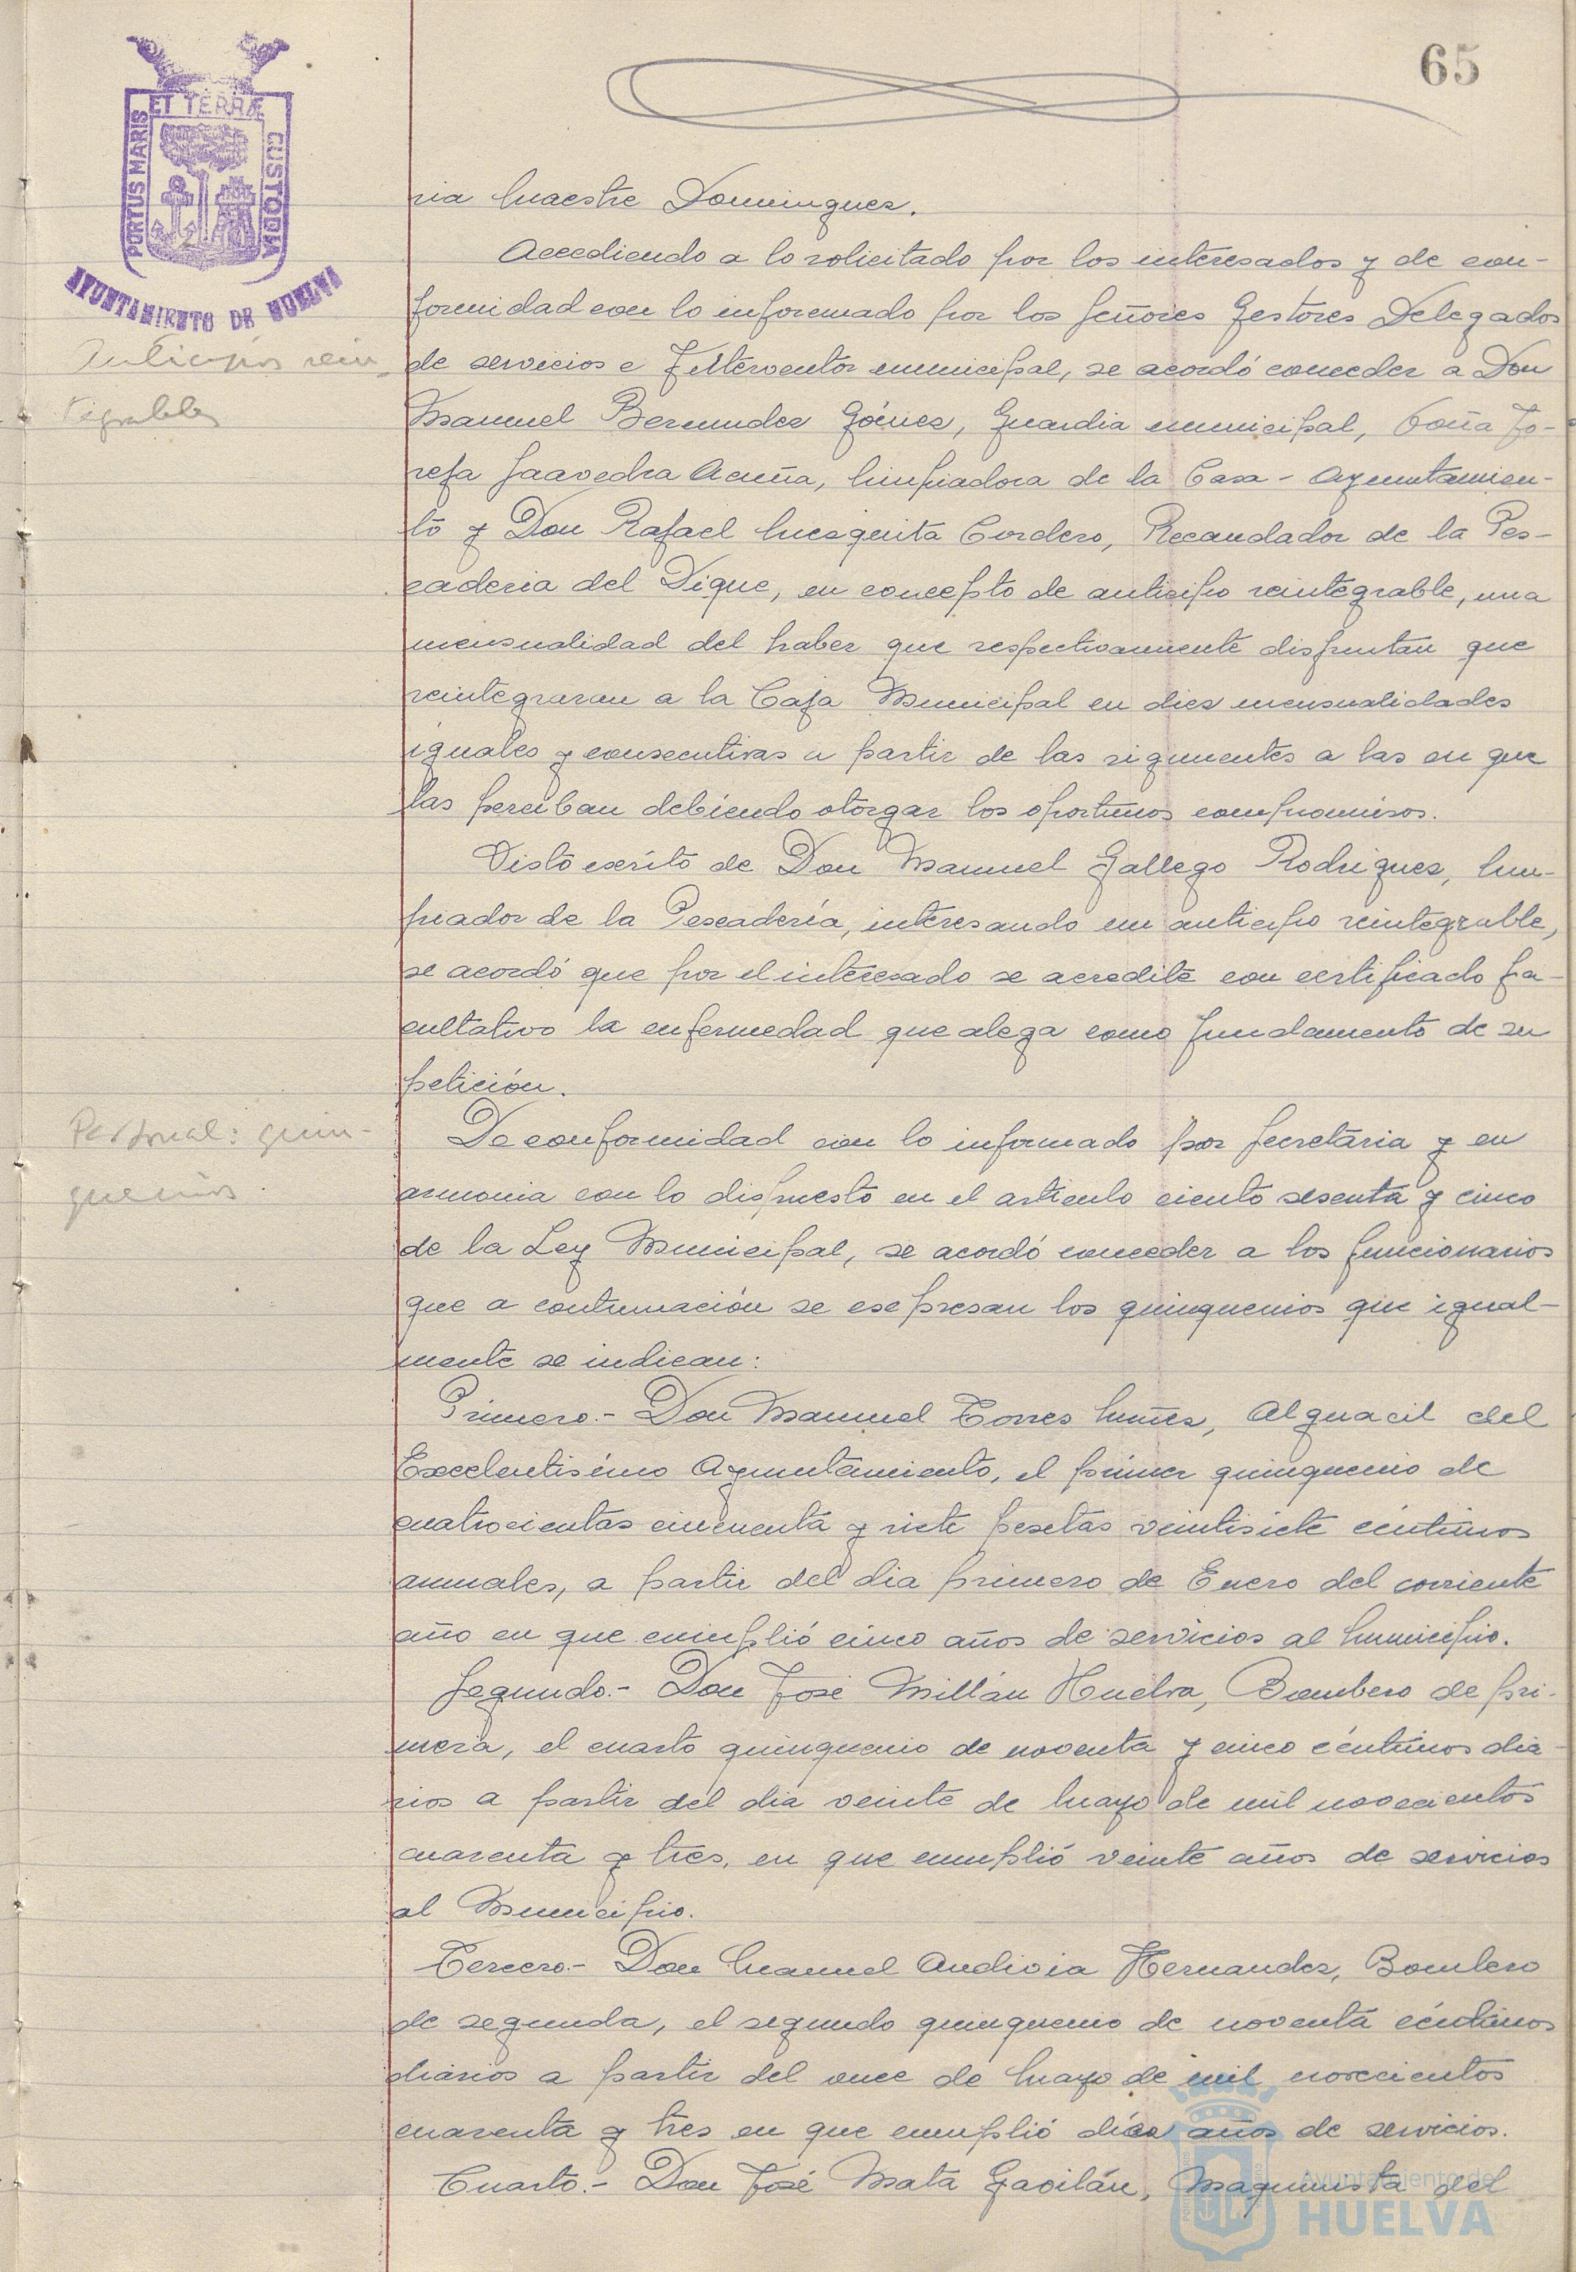 65
PORTUS MARIS ET TERRÆ CUSTODIA
AYUNTAMIENTO DE HUELVA
ria Maestre Dominguez.
Accediendo a lo solicitado por los interesados y de con-
formidad con lo informado por los Señores Gestores Delegados
Anticipos rein-
de servicios e Interventor municipal, se acordó conceder a Don
tegrables
Manuel Bermudez Gómez, Guardia municipal, Doña Jo-
sefa Saavedra Acuña, limpiadora de la Casa-Ayuntamien-
to y Don Rafael Mezquita Cordero, Recaudador de la Pes-
caderia del Dique, en concepto de anticipo reintegrable, una
mensualidad del haber que respectivamente disfrutan que
reintegraran a la Caja Municipal en diez mensualidades
iguales y consecutivas a partir de las siguientes a las en que
las perciban debiendo otorgar los oportunos compromisos.
Visto escrito de Don Manuel Gallego Rodriguez, lim-
piador de la Pescadería, interesando un anticipo reintegrable,
se acordó que por el interesado se acredite con certificado fa-
cultativo la enfermedad que alega como fundamento de su
petición.
Personal: quin-
De conformidad con lo informado por Secretaria y en
quenios
armonia con lo dispuesto en el articulo ciento sesenta y cinco
de la Ley Municipal, se acordó conceder a los funcionarios
que a continuación se expresan los quinquenios que igual-
mente se indican:
Primero.- Don Manuel Torres Nuñez, Alguacil del
Excelentisimo Ayuntamiento, el primer quinquenio de
cuatrocientas cincuenta y siete pesetas veintisiete céntimos
anuales, a partir del dia primero de Enero del corriente
año en que cumplió cinco años de servicios al Municipio.
Segundo.- Don José Millán Huelva, Bombero de pri-
mera, el cuarto quinquenio de noventa y cinco céntimos dia-
rios a partir del dia veinte de Mayo de mil novecientos
cuarenta y tres, en que cumplió veinte años de servicios
al Municipio.
Tercero.- Don Manuel Andivia Hernandez, Bombero
de segunda, el segundo quinquenio de noventa céntimos
diarios a partir del once de Mayo de mil novecientos
cuarenta y tres en que cumplió diez años de servicios.
Cuarto.- Don José Mata Gavilán, Maquinista del
Ayuntamiento de
HUELVA